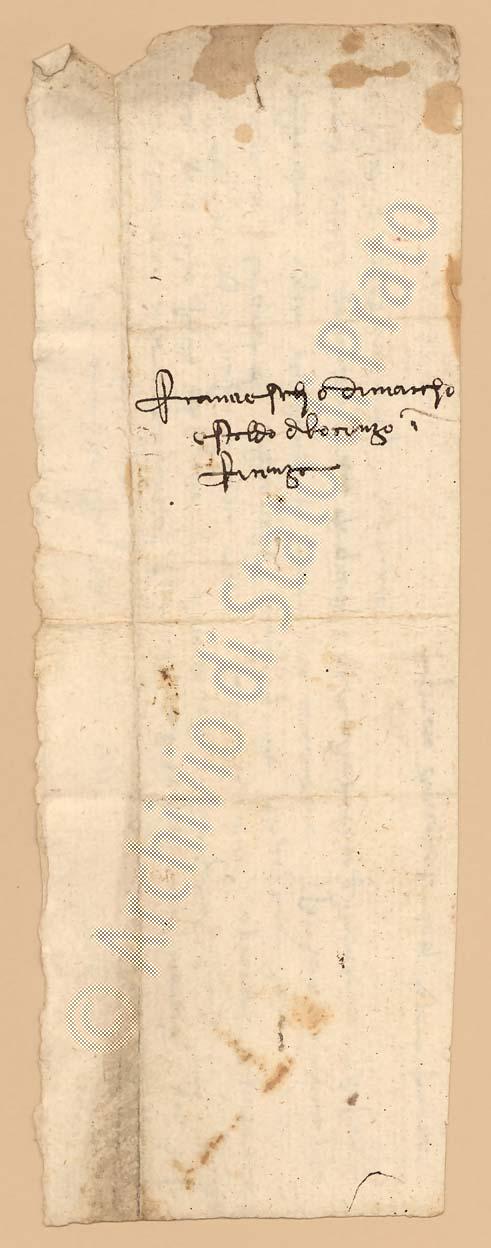 Franciescho dimarcho
e stoldo dlorenzo i
Firenze
© Archivio di Stato di Prato